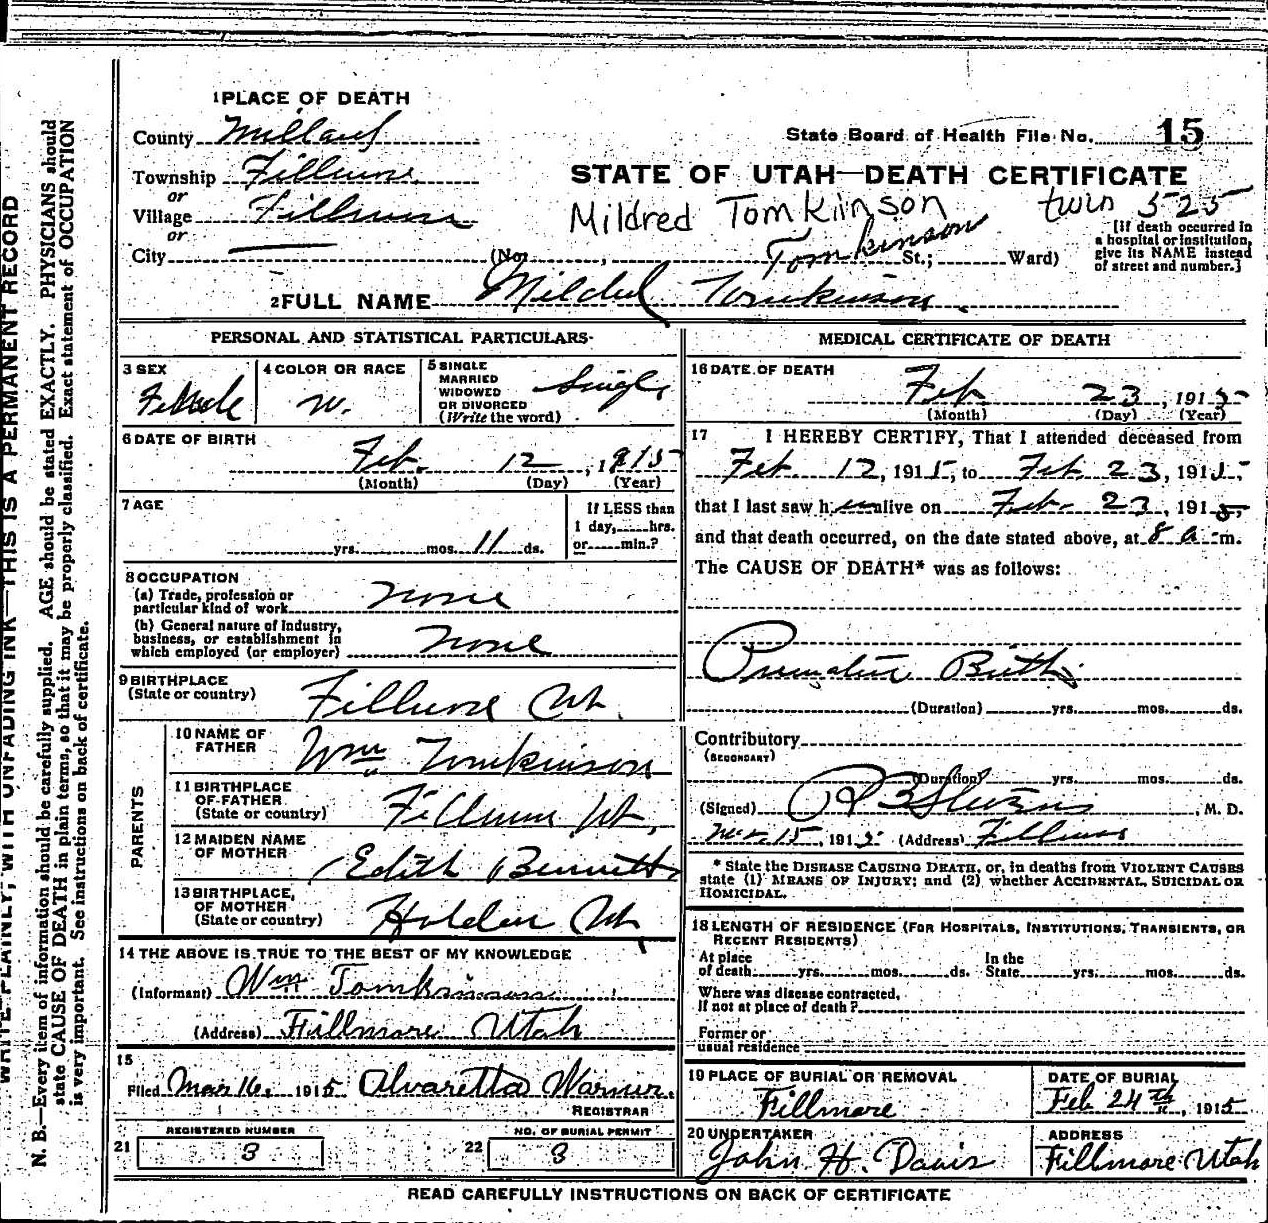 WRITE PLAINLY, WITH UNFADING INK—THIS IS A PERMANENT RECORD
N. B.—Every item of information should be carefully supplied. AGE should be stated EXACTLY. PHYSICIANS should
state CAUSE OF DEATH in plain terms, so that it may be properly classified. Exact statement of OCCUPATION
is very important. See instructions on back of certificate.
1 PLACE OF DEATH
County Millard
Township Fillmore
or
Village Fillmore
or
City
State Board of Health File No. 15
STATE OF UTAH—DEATH CERTIFICATE
Mildred Tomkinson twin 525
[If death occurred in
a hospital or institution,
give its NAME instead
of street and number.]
(No. , St.; Ward)
Tomkinson
2 FULL NAME Mildred Tomkinson
PERSONAL AND STATISTICAL PARTICULARS
3 SEX
Female
4 COLOR OR RACE
W.
5 SINGLE
MARRIED
WIDOWED
OR DIVORCED
(Write the word)
Single
6 DATE OF BIRTH
Feb. 12, 1915
(Month) (Day) (Year)
7 AGE
yrs. mos. 11 ds.
If LESS than
1 day, hrs.
or min.?
8 OCCUPATION
(a) Trade, profession or
particular kind of work None
(b) General nature of industry,
business, or establishment in
which employed (or employer) None
9 BIRTHPLACE
(State or country) Fillmore Ut.
PARENTS
10 NAME OF
FATHER Wm Tomkinson
11 BIRTHPLACE
OF FATHER
(State or country) Fillmore Ut.
12 MAIDEN NAME
OF MOTHER Edith Bennett
13 BIRTHPLACE,
OF MOTHER
(State or country) Holden Ut.
14 THE ABOVE IS TRUE TO THE BEST OF MY KNOWLEDGE
(Informant) Wm Tomkinson
(Address) Fillmore Utah
15
Filed Mar 16, 1915 Alvaretta Warner.
REGISTRAR
REGISTERED NUMBER
21 3
NO. OF BURIAL PERMIT
22 3
MEDICAL CERTIFICATE OF DEATH
16 DATE OF DEATH
Feb 23, 1915
(Month) (Day) (Year)
17 I HEREBY CERTIFY, That I attended deceased from
Feb 12, 1915, to Feb 23, 1915
that I last saw her alive on Feb. 23, 1915,
and that death occurred, on the date stated above, at 8 a m.
The CAUSE OF DEATH* was as follows:
Premature Birth
(Duration) yrs. mos. ds.
Contributory
(SECONDARY)
(Duration) yrs. mos. ds.
(Signed) Stevens, M. D.
Mar 15, 1915 (Address) Fillmore
* State the DISEASE CAUSING DEATH, or, in deaths from VIOLENT CAUSES
state (1) MEANS OF INJURY; and (2) whether ACCIDENTAL, SUICIDAL OR
HOMICIDAL.
18 LENGTH OF RESIDENCE (FOR HOSPITALS, INSTITUTIONS, TRANSIENTS, OR
RECENT RESIDENTS)
At place
of death yrs. mos. ds.
In the
State yrs. mos. ds.
Where was disease contracted,
If not at place of death?
Former or
usual residence
19 PLACE OF BURIAL OR REMOVAL
Fillmore
DATE OF BURIAL
Feb 24th, 1915
20 UNDERTAKER
John H. Davis
ADDRESS
Fillmore Utah
READ CAREFULLY INSTRUCTIONS ON BACK OF CERTIFICATE